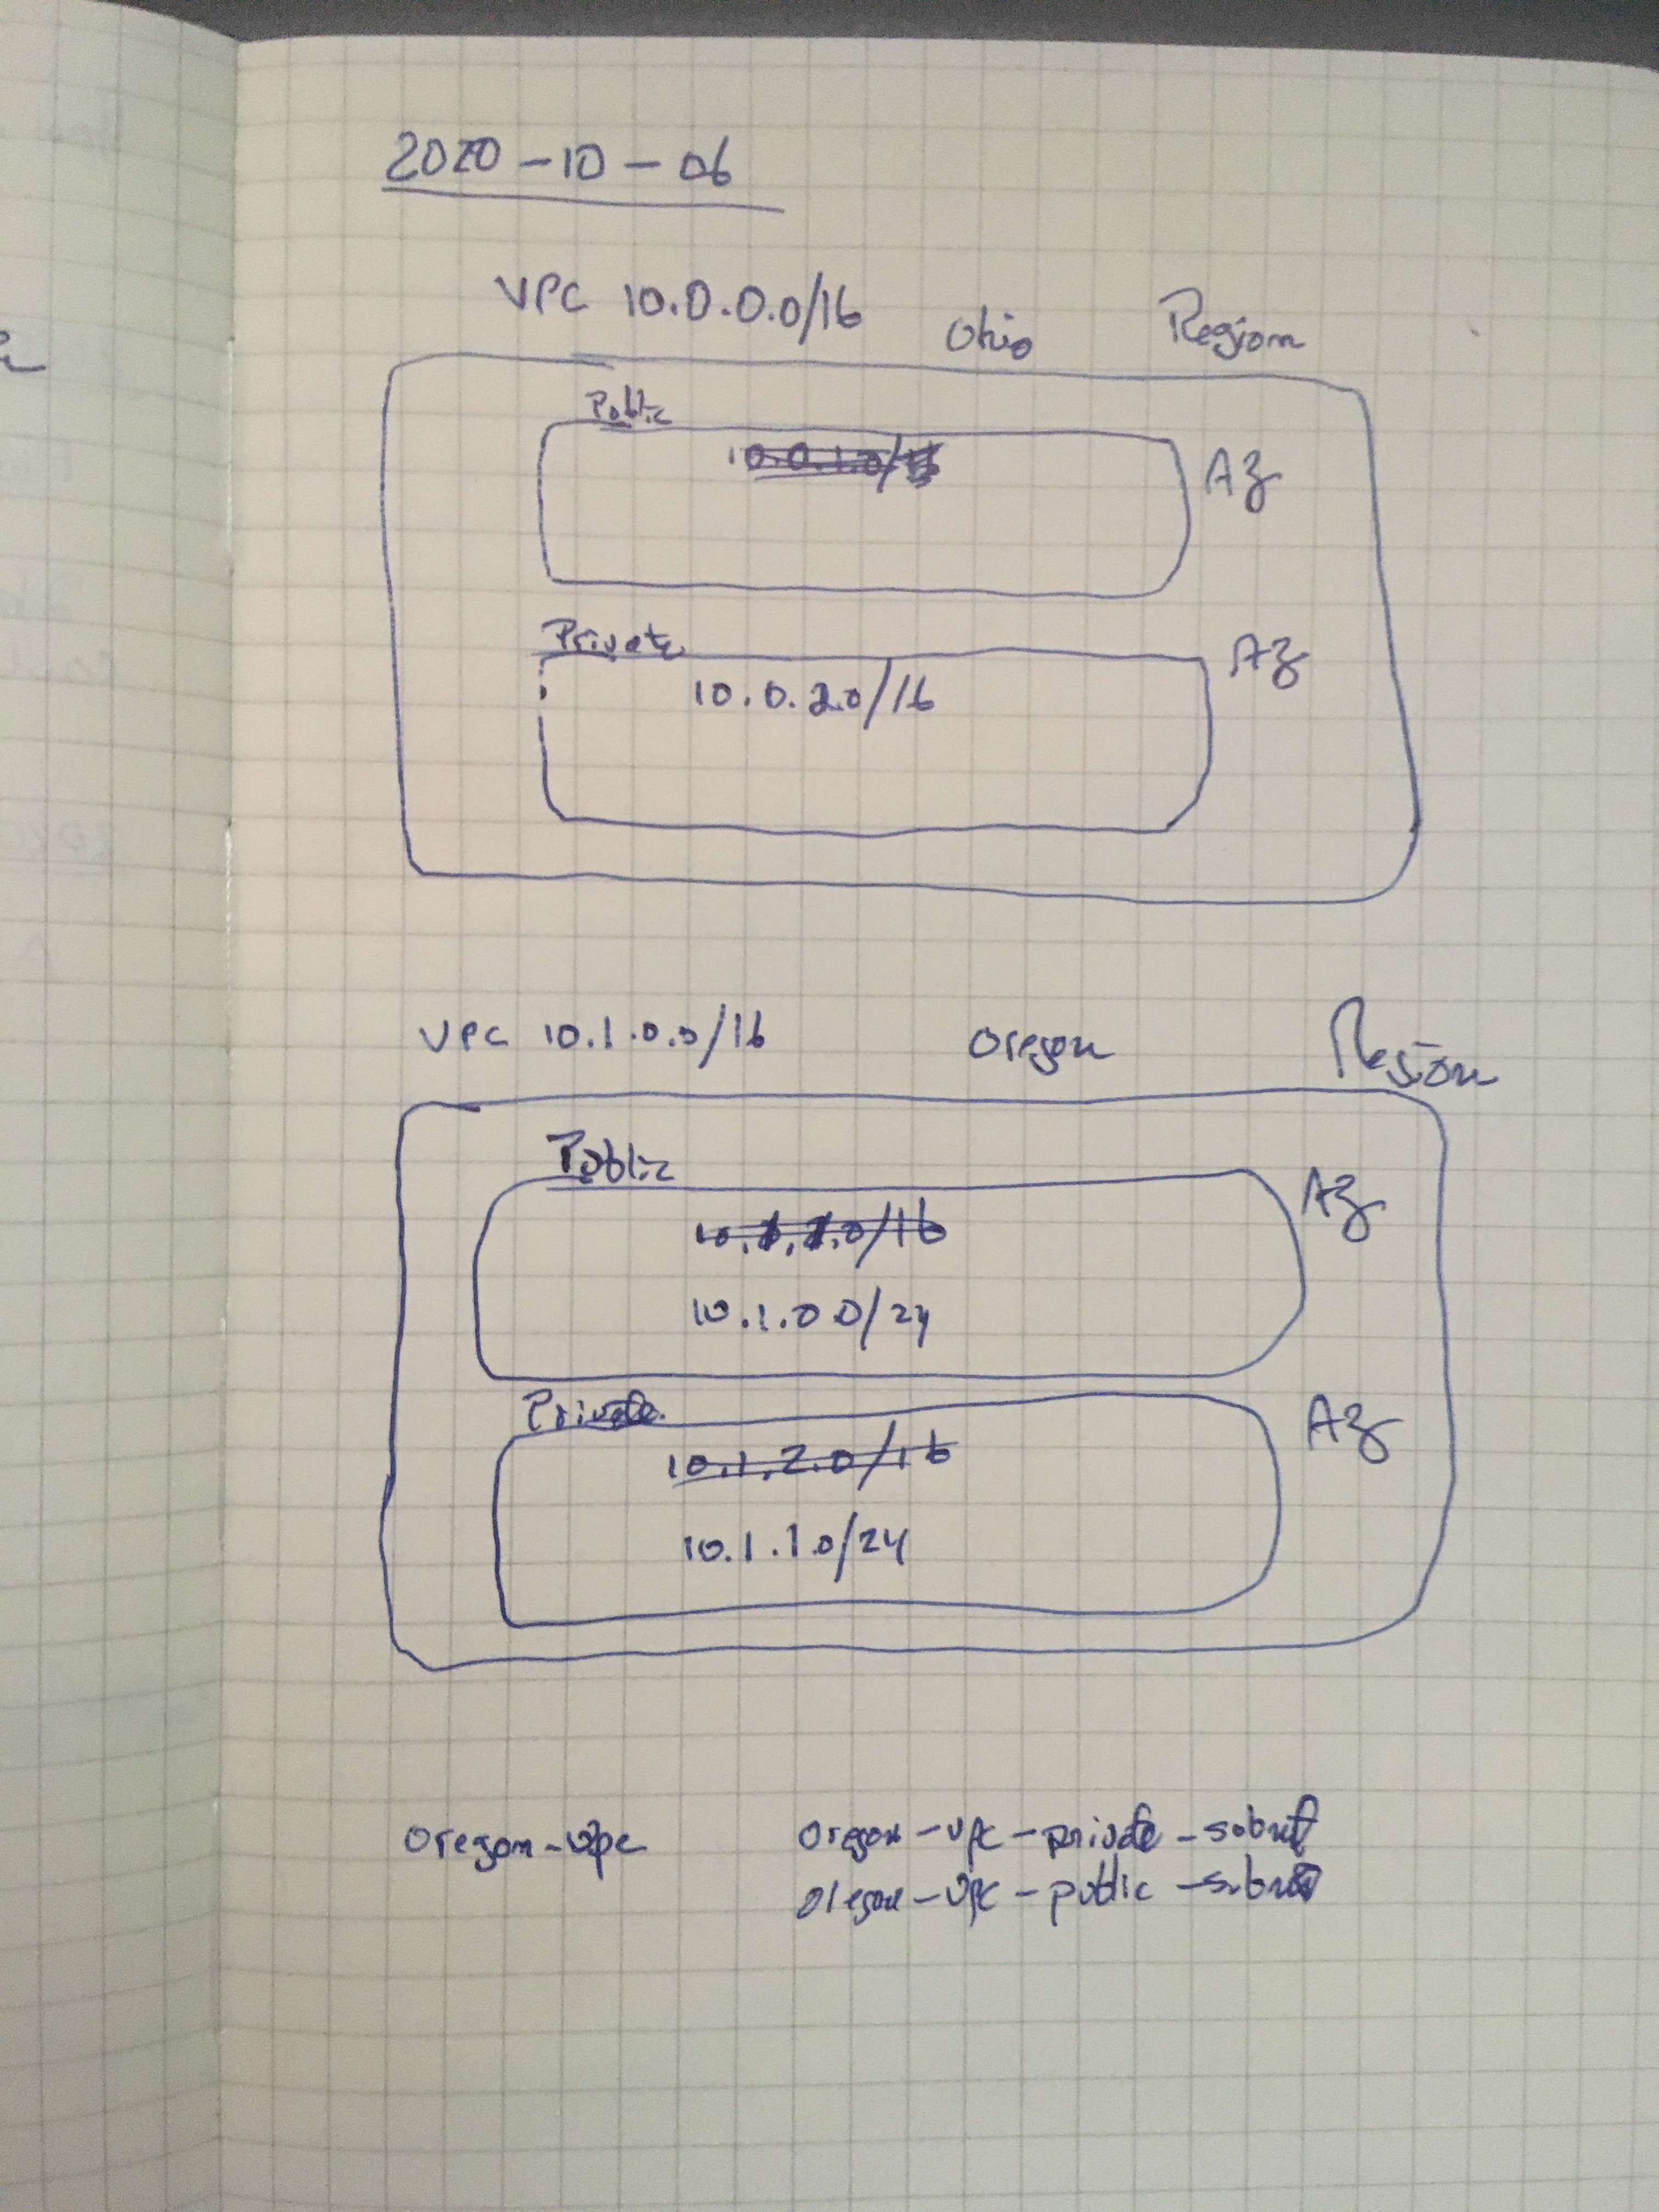 2020-10-06
VPC 10.0.0.0/16 Ohio Region
Public
10.0.1.0/
AZ
Private
AZ
10.0.2.0/16
VPC 10.1.0.0/16 Oregon Region
Public
AZ
10.1.1.0/16
10.1.0.0/24
Private
AZ
10.1.2.0/16
10.1.1.0/24
Oregon-vpc Oregon-vpc-private-subnet
Oregon-vpc-public-subnet